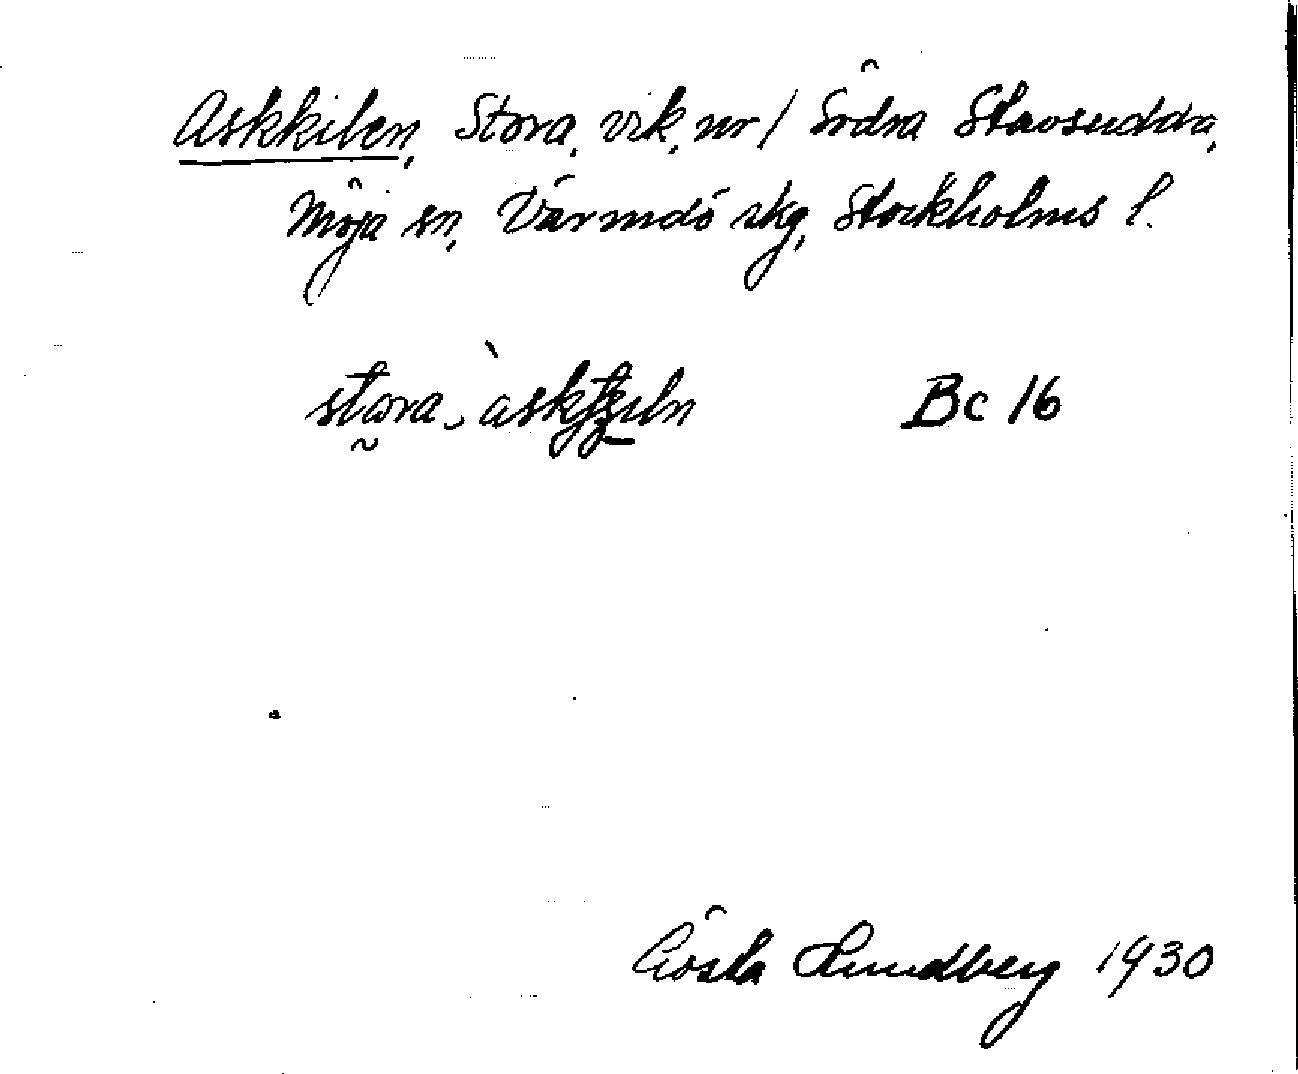 Askkilen, Stora, vik, nr / Södra Stavsudda,
Möja sn, Värmdö skg, Stockholms l.
stora
Bc 16
Gösta Lundberg 1930